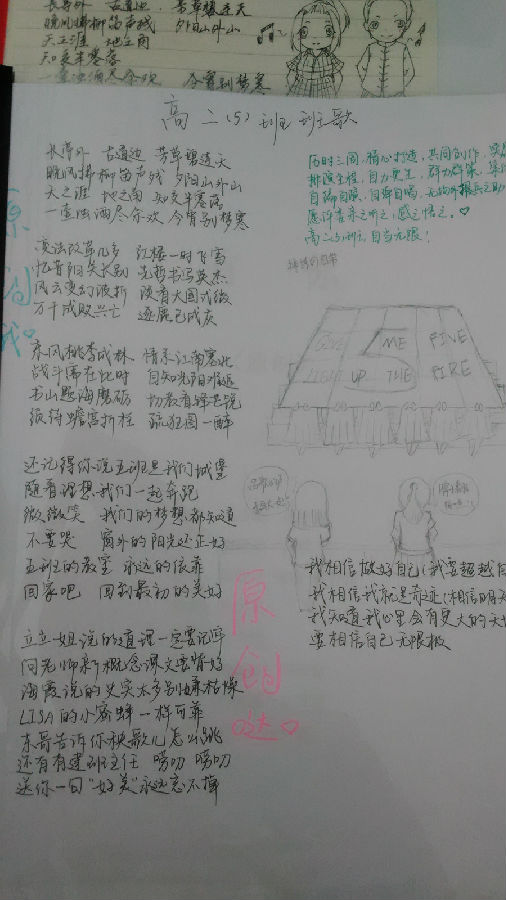 晚风拂柳笛声残 夕阳山外山
天之涯 地之角
知交半零落
一壶浊酒尽余欢 今宵别梦寒
高二(5)班 班歌
长亭外 古道边 芳草碧连天
晚风拂柳笛声残 夕阳山外山
天之涯 地之角 知交半零落
一壶浊酒尽余欢 今宵别梦寒
变法改革几多 红楼一时飞雪
忆昔阳关长别 先哲书写英杰
风云变幻波折 读看大国式微
万千成败兴亡 逐鹿已成灰
东风桃李成林 情系江南塞北
战斗即在此时 自知光阴难追
书山题海磨砺 切教看锋芒锐
须待蟾宫折桂 疏狂图一醉
还记得你说五班是我们城堡
随着理想我们一起奔跑
微微笑 我们的梦想都知道
不要哭 窗外的阳光还正好
五班的教室 永远的依靠
回家吧 回到最初的美好
立立姐说的道理一定要记牢
闫老师新概念课文要背好
海霞说的史实太多别嫌枯燥
LISA的小蜜蜂一样可靠
东哥告诉你秧歌儿怎么跳
还有有建班主任 唠叨 唠叨
送你一句"好美"永远忘不掉
历时三周,精心打造,共同创作,
排演全程,自力更生,群力群策,
自编自限,自弹自唱,无场外援兵之助
愿许吾亦之听之,感之悟之。♡
高二5班,自当无限!
GIVE ME FIVE
LIGHT UP THE FIRE
我相信做好自己(我要超越自
我相信我就是奇迹(相信明天
我知道我心里会有更大的天
要相信自己无限极
原创哒♡
原创